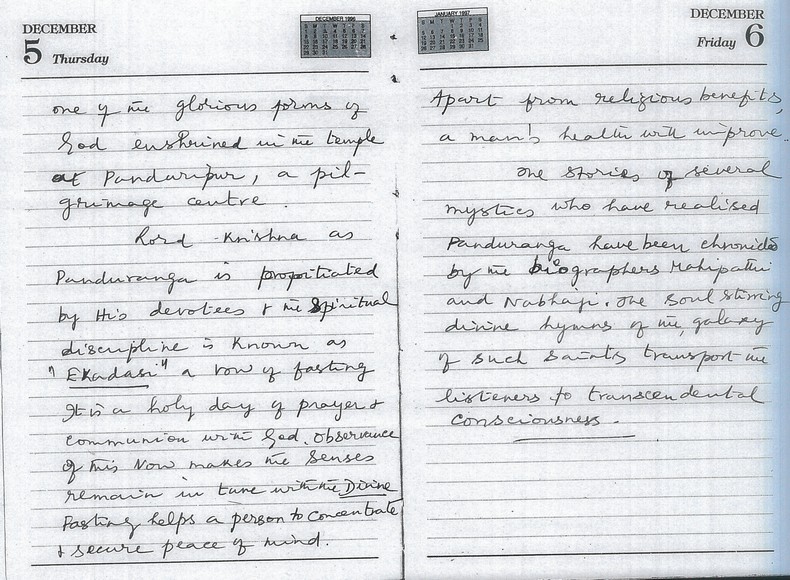 DECEMBER
5 Thursday
DECEMBER 1996
one of the glorious forms of
God enshrined in the temple
at Pandaripur, a pil-
grimage centre.
Lord Krishna as
Panduranga is propitiated
by His devotees & the Spiritual
discipline is known as
"Ekadasi" a vow of fasting
It is a holy day of prayer &
communion with God. Observance
of this vow makes the senses
remain in tune with the Divine
Fasting helps a person to concentrate
& secure peace of mind.
JANUARY 1997
DECEMBER
Friday 6
Apart from religious benefits,
a man's health will improve.
The stories of several
mystics who have realised
Panduranga have been chronicled
by the biographers Mahipathi
and Nabhaji. The soul stirring
divine hymns of the galaxy
of such Saints transport the
listeners to transcendental
consciousness.